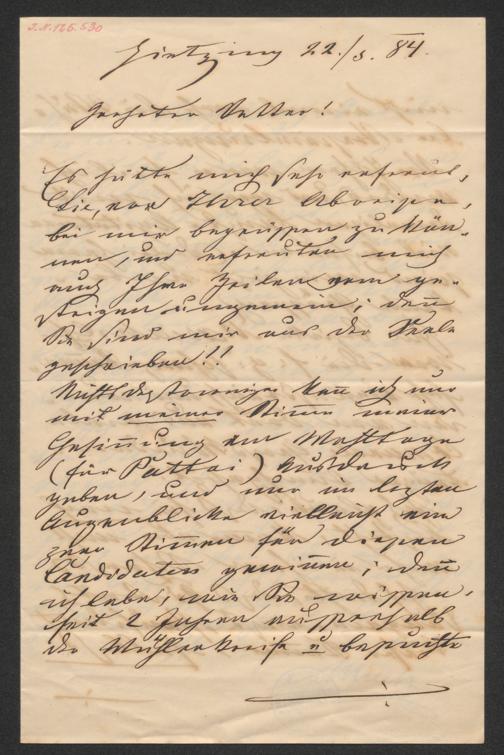 J.N. 126.530
Hietzing 22./3. 84.
Geehrter Vetter!
Es hätte mich sehr erfreut,
Sie, vor Ihrer Abreise,
bei mir begrüssen zu kön-
nen, und erfreuten mich
auch Ihre Zeilen vom ge-
strigen ungemein; denn
Sie sind mir aus der Seele
geschrieben!!
Nichtsdestoweniger kann ich nur
mit meiner Stimme meiner
Gesinnung am Wahltage
(für Pattai) Ausdruck
geben, und nur im letzten
Augenblicke vielleicht ein
paar Stimmen für diesen
Candidaten gewinnen; denn
ich lebe, wie Sie wissen,
seit 2 Jahren ausserhalb
der Wählerkreise u besuchte